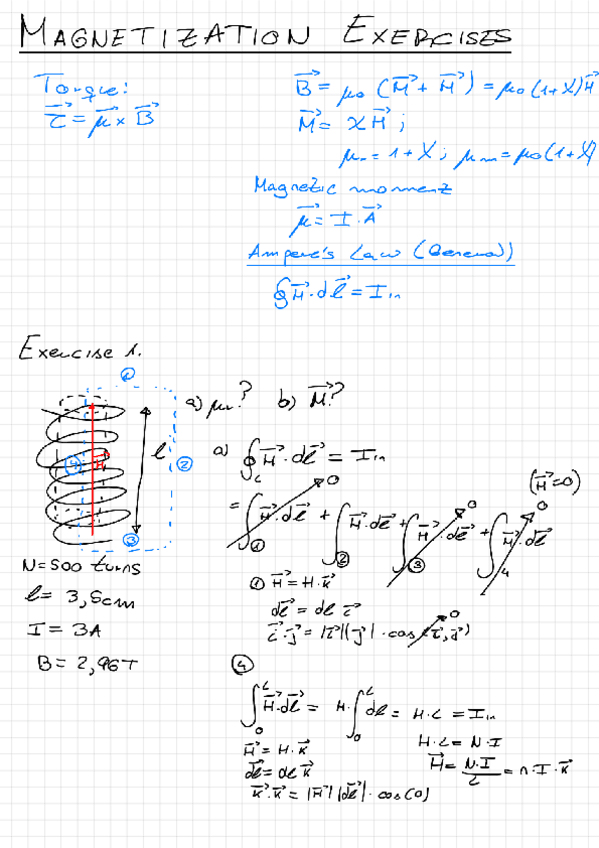 MAGNETIZATION EXERCISES
Torque:
τ⃗ = μ⃗ × B⃗
B⃗ = μ₀ (M⃗ + H⃗) = μ₀(1+χ)H⃗
M⃗ = χH⃗ ;
μᵣ = 1+χ ; μₘ = μ₀(1+χ)
Magnetic moment
μ⃗ = I · A⃗
Ampere's Law (General)
∮ H⃗ · dℓ⃗ = Iᵢₙ
Exercise 1.
① ② ③ ④
H⃗
ℓ
N = 500 turns
ℓ = 3,5cm
I = 3A
B = 2,96T
a) μᵣ? b) M⃗?
a) ∮_L H⃗ · dℓ⃗ = Iᵢₙ
(H⃗=0)
= ∫① H⃗ · dℓ⃗ →0 + ∫② H⃗ · dℓ⃗ + ∫③ H⃗ · dℓ⃗ →0 + ∫4 H⃗ · dℓ⃗ →0
① H⃗ = H · k⃗
dℓ⃗ = dℓ i⃗
i⃗ · j⃗ = |i⃗| |j⃗| · cos(i⃗, j⃗) →0
④
∫₀ᴸ H⃗ · dℓ⃗ = H · ∫₀ᴸ dℓ = H · L = Iᵢₙ
H⃗ = H · k⃗
H · L = N · I
dℓ⃗ = dℓ k⃗
H⃗ = N·I/L = n · I · k⃗
k⃗ · k⃗ = |H⃗| |dℓ⃗| · cos(0)